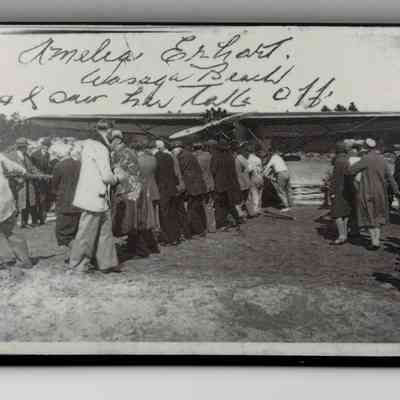 Amelia Erhart.
Wasaga Beach
& I saw her Take Off.